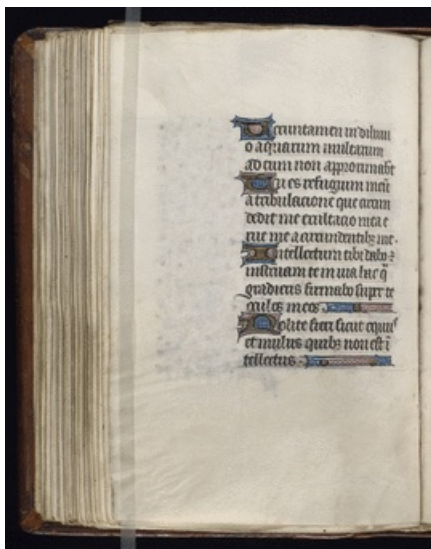 Veruntamen in diluui
o aquarum multarum
ad eum non approximabt
Tu es refugium meū
a tribulacione que circum
dedit me exultacio mea e
rue me a circundentibꝫ me.
Intellectum tibi dabo ⁊
instruam te in uia hac q̄
gradieris firmabo super te
oculos meos
Nolite fieri sicut equus
et mulus quibꝫ non est ī
tellectus